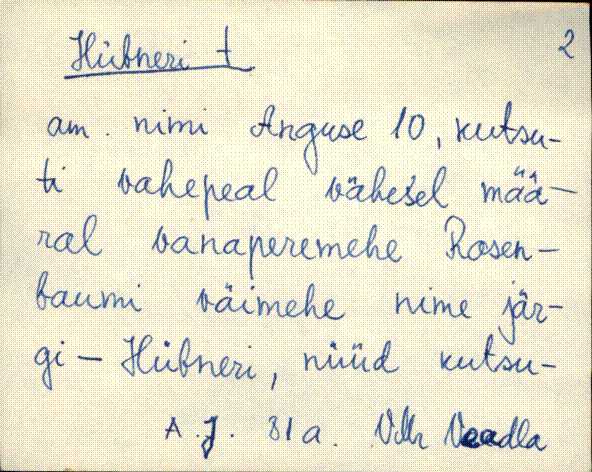 Hübneri t 2
am. nimi Anguse 10, kutsu-
ti vahepeal vähesel mää-
ral vanaperemehe Rosen-
baumi väimehe nime jär-
gi – Hübneri, nüüd kutsu-
A. J. 31a. Veadla